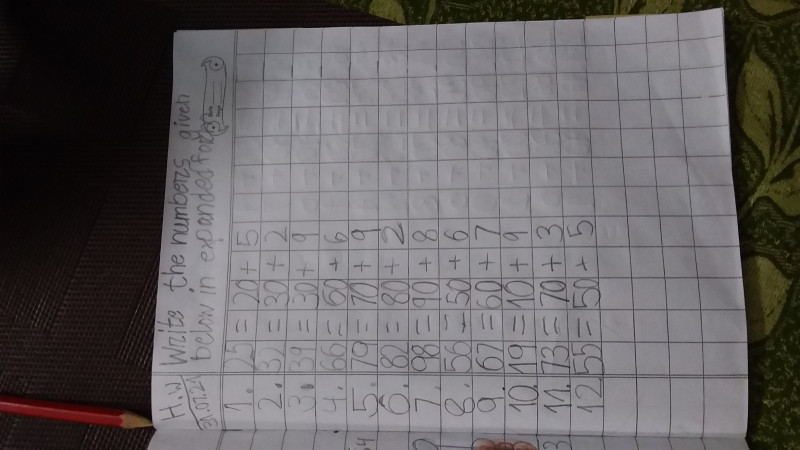 H.W Write the numbers given
31.07.21 below in expanded form
1. 25 = 20 + 5
2. 32 = 30 + 2
3. 39 = 30 + 9
4. 66 = 60 + 6
5. 79 = 70 + 9
6. 82 = 80 + 2
7. 98 = 90 + 8
8. 56 = 50 + 6
9. 67 = 60 + 7
10. 19 = 10 + 9
11. 73 = 70 + 3
12. 55 = 50 + 5